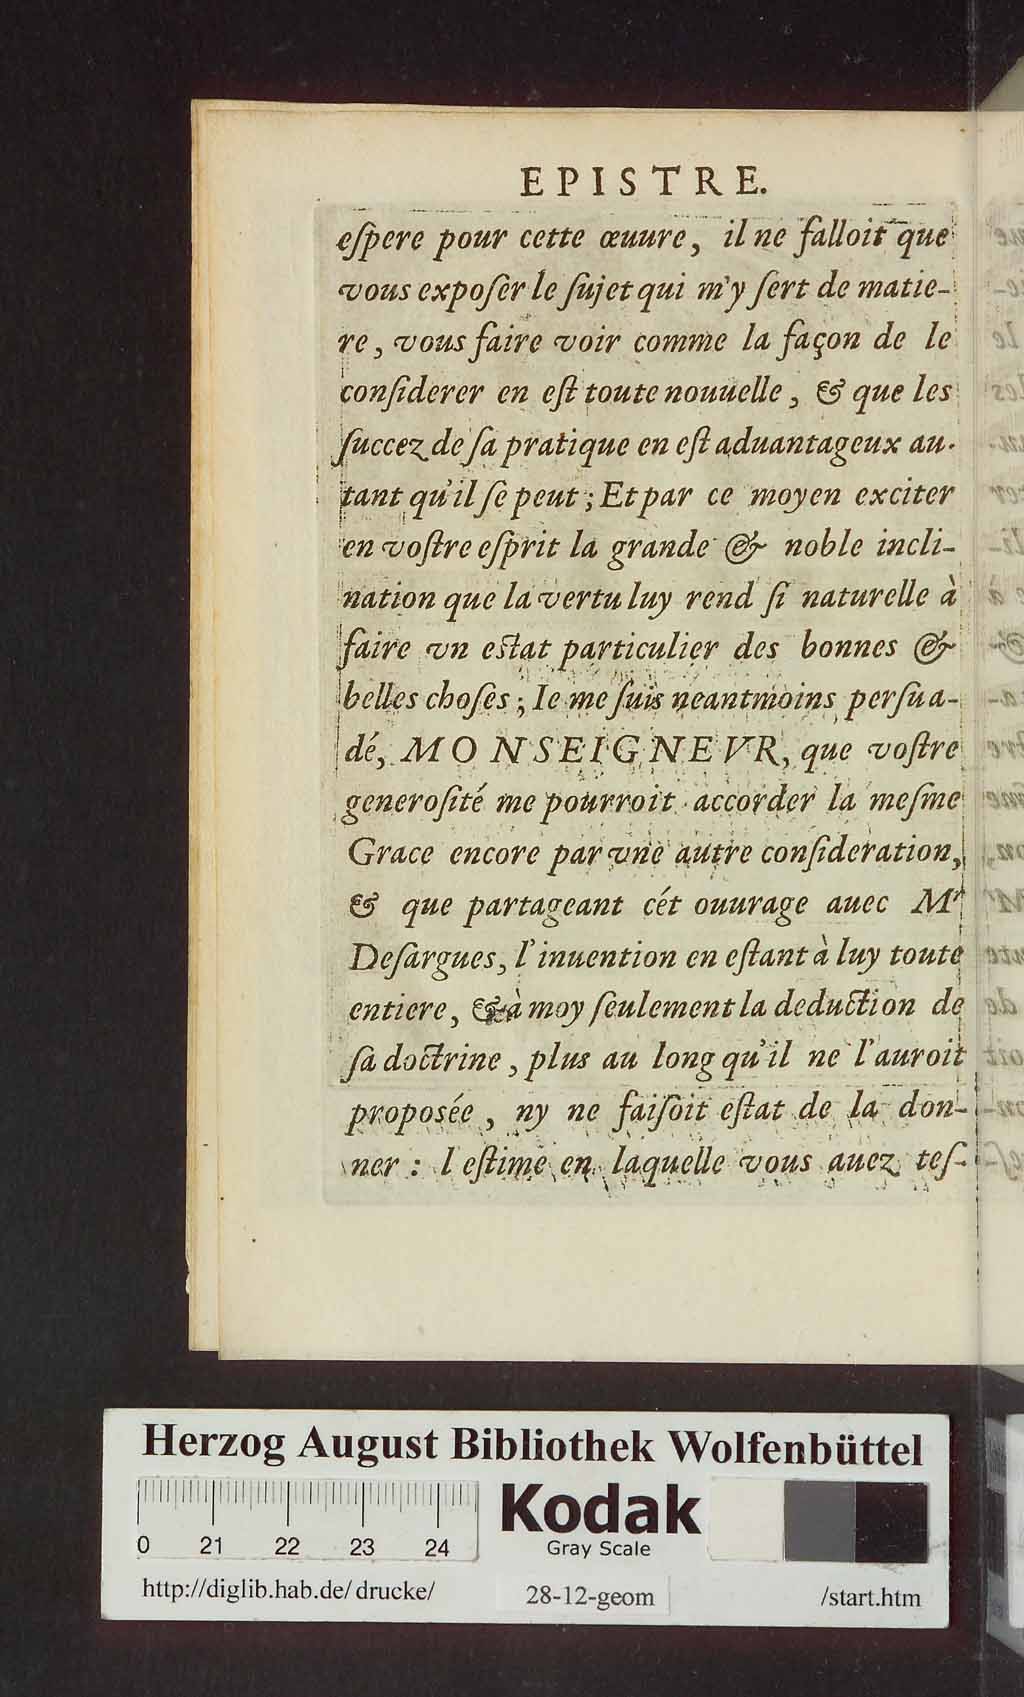 EPISTRE.
eſpere pour cette œuure, il ne falloit que
vous expoſer le ſujet qui m'y ſert de matie-
re, vous faire voir comme la façon de le
conſiderer en eſt toute nouuelle, & que les
ſuccez de ſa pratique en eſt aduantageux au-
tant qu'il ſe peut ; Et par ce moyen exciter
en voſtre eſprit la grande & noble incli-
nation que la vertu luy rend ſi naturelle à
faire vn eſtat particulier des bonnes &
belles choſes ; Ie me ſuis neantmoins perſua-
dé, MONSEIGNEVR, que voſtre
generoſité me pourroit accorder la meſme
Grace encore par vne autre conſideration,
& que partageant cét ouurage auec Mr
Deſargues, l'inuention en eſtant à luy toute
entiere, & à moy ſeulement la deduction de
ſa doctrine, plus au long qu'il ne l'auroit
proposée, ny ne faiſoit eſtat de la don-
ner : l'eſtime en laquelle vous auez teſ-
Herzog August Bibliothek Wolfenbüttel
0 21 22 23 24
Kodak
Gray Scale
http://diglib.hab.de/drucke/ 28-12-geom /start.htm